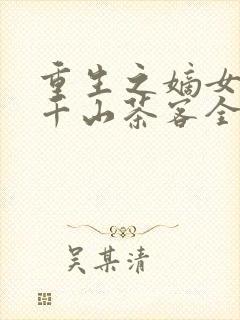 重生之嫡女
千山茶客全
吴某清